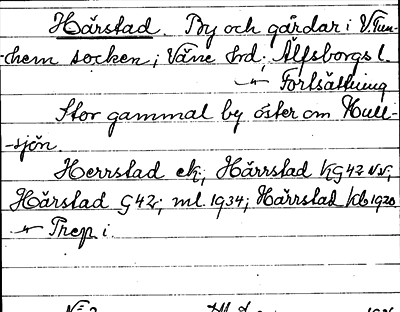 Härstad. By och gårdar i V Tun-
-hem socken; Väne hrd; Älfsborgs l.
Fortsättning
Stor gammal by öster om Hull-
-sjön.
Herrstad ek; Härrstad kG 42 NV;
Härstad G 42; ml. 1934; Härrstad kb 1920
Trep i.